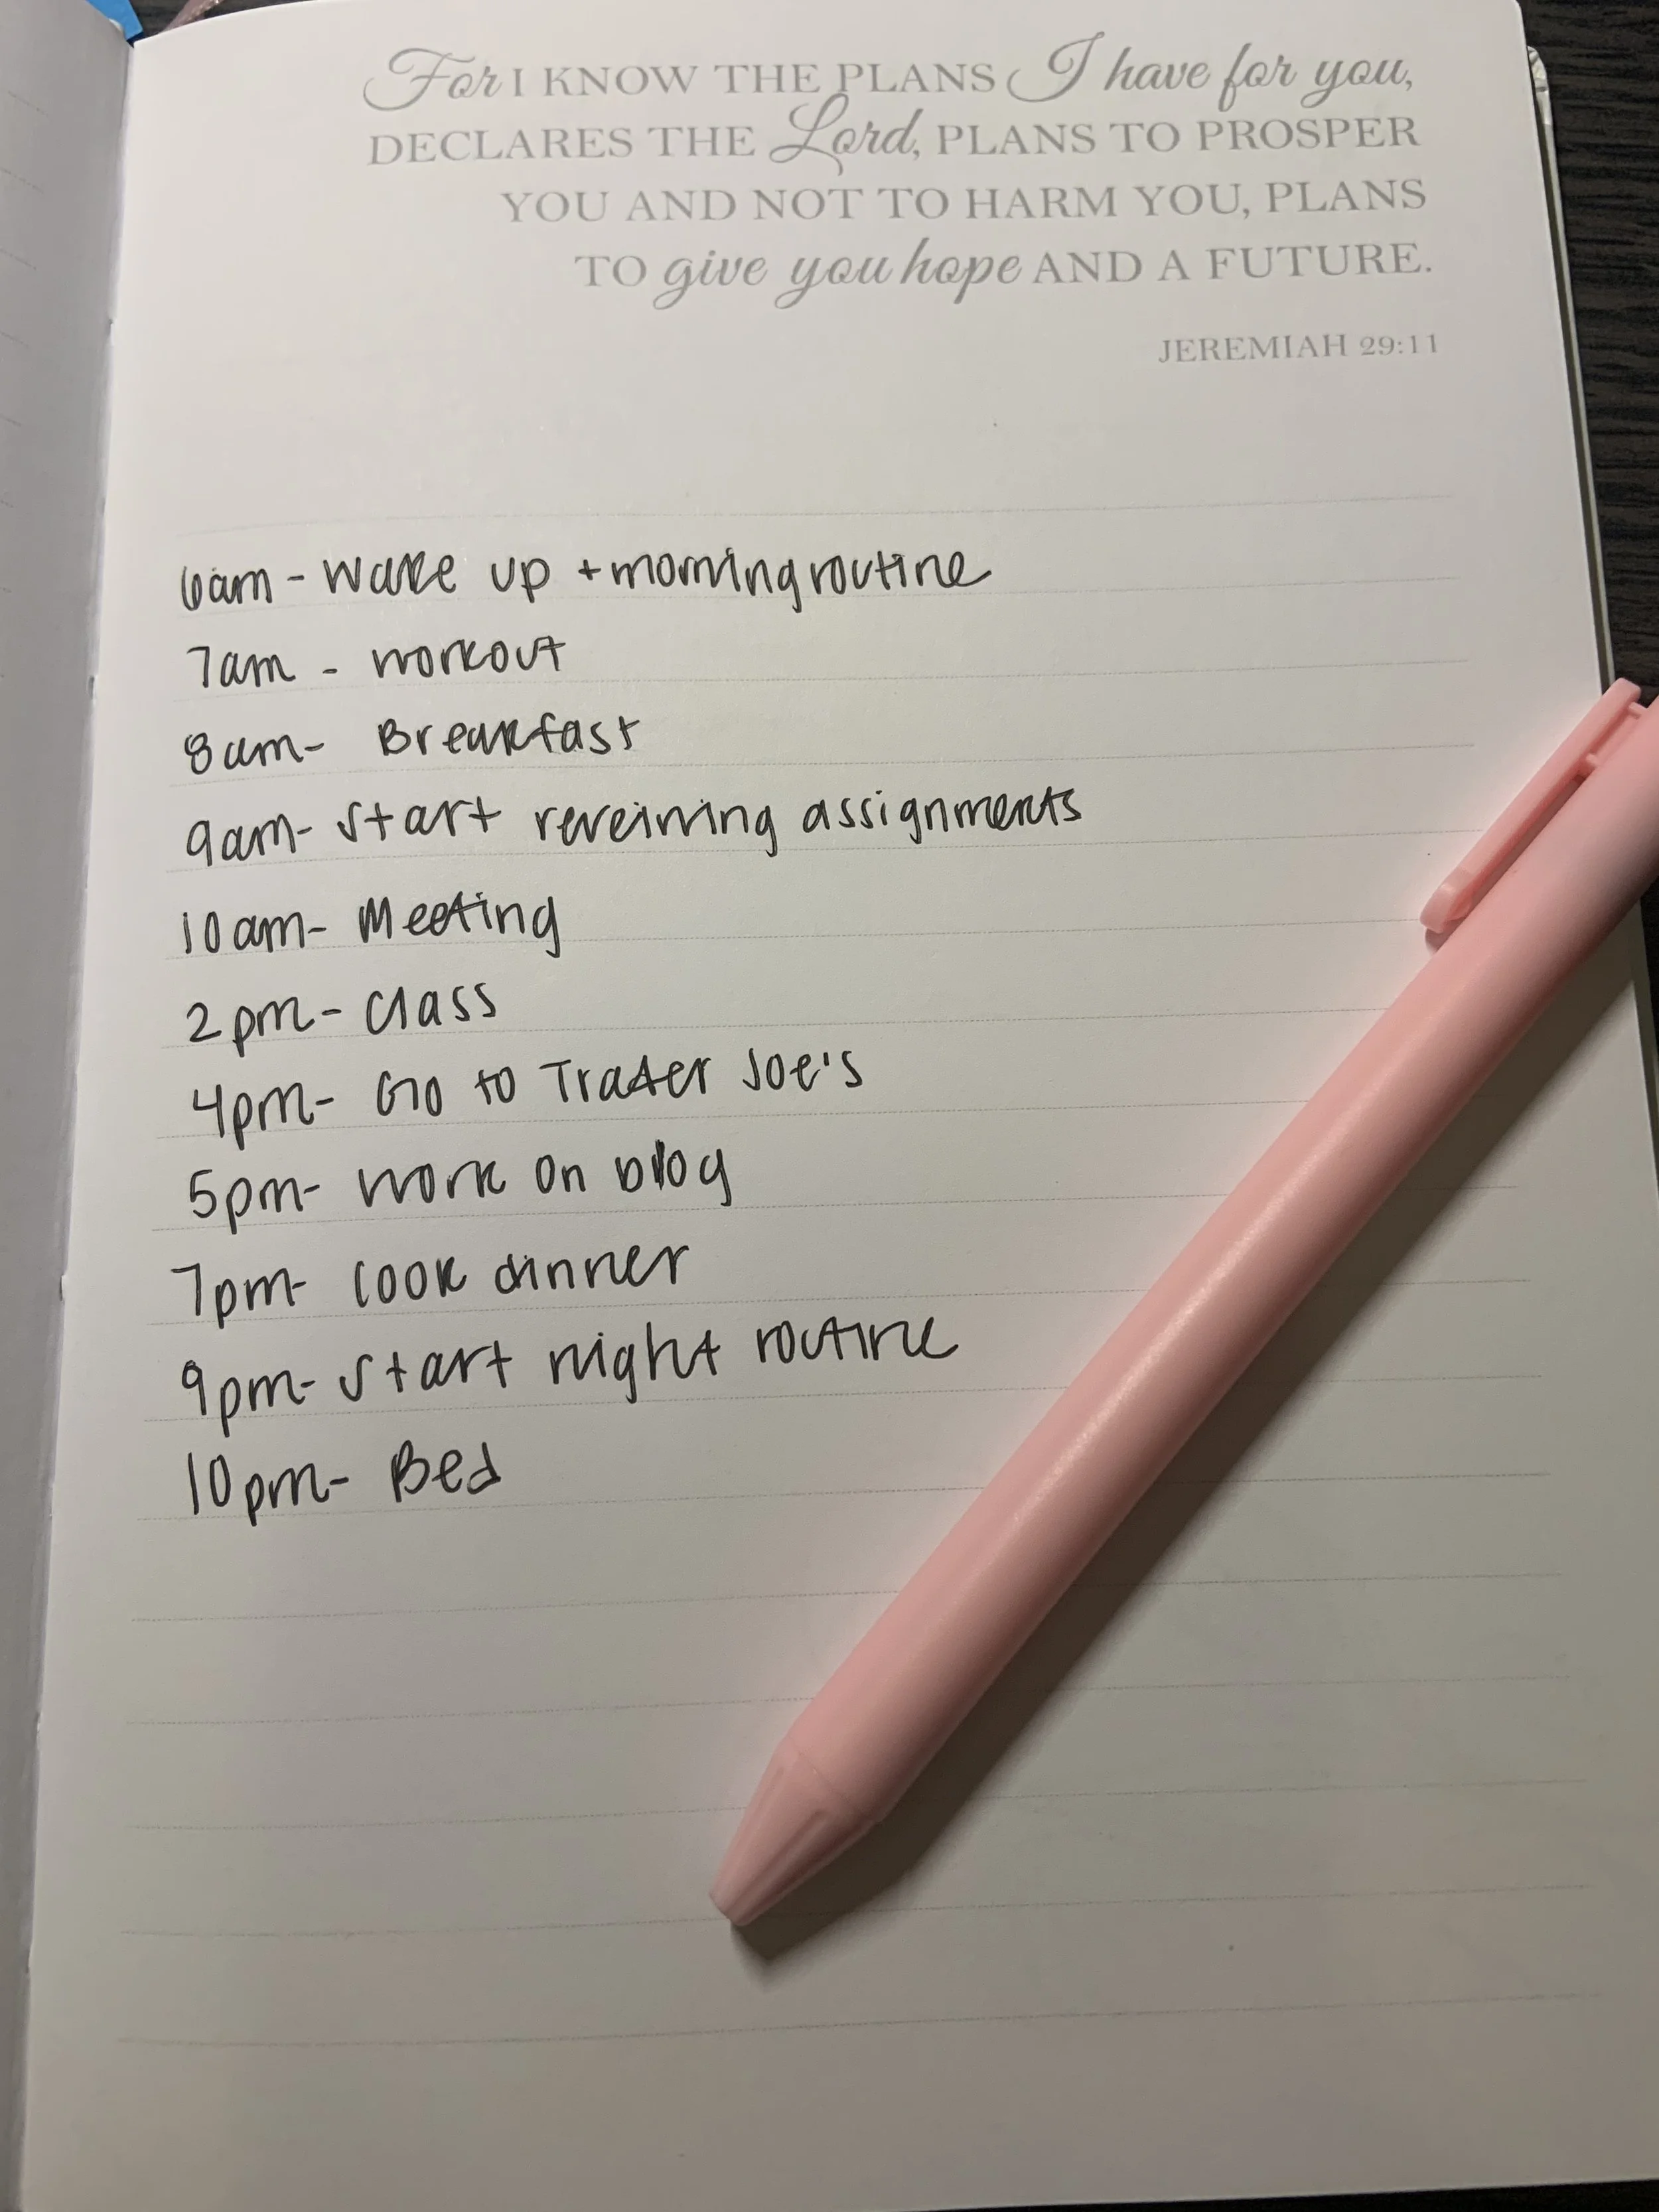 For I KNOW THE PLANS I have for you,
DECLARES THE Lord, PLANS TO PROSPER
YOU AND NOT TO HARM YOU, PLANS
TO give you hope AND A FUTURE.
JEREMIAH 29:11
6am - wake up + morning routine
7am - workout
8am - Breakfast
9am - start reveiwing assignments
10am - Meeting
2pm - class
4pm - Go to Trader Joe's
5pm - work on blog
7pm - cook dinner
9pm - start night routine
10pm - Bed